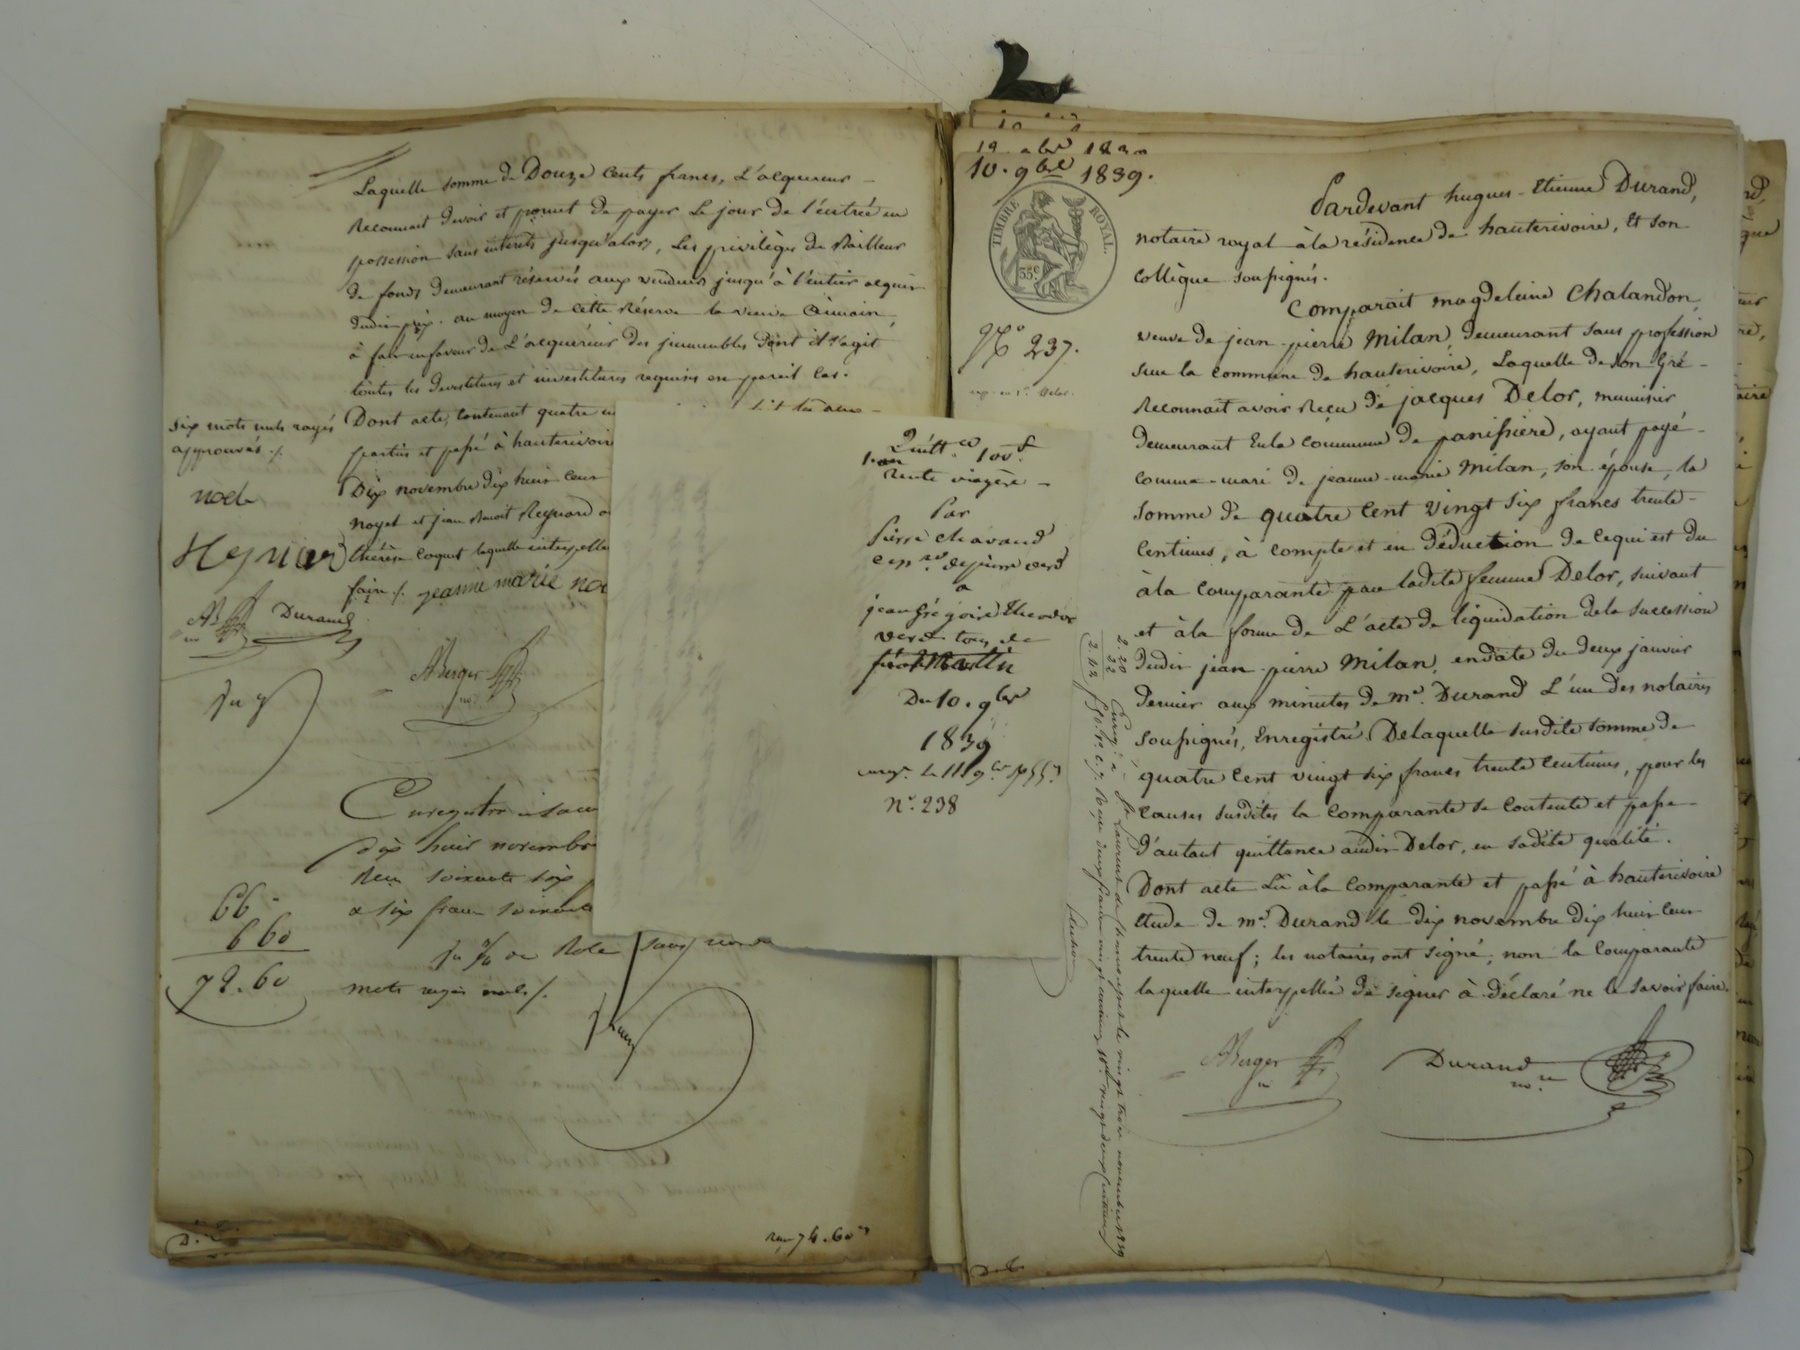 Laquelle somme de Douze cents francs, L'acquereur
Reconnait devoir et promet de payer le jour de l'entrée en
possession sans interets jusqu'alors, les privilèges du Bailleur
de fonds demeurant réservés aux vendeurs jusqu'à l'entier acquit
dudit prix. au moyen de cette Réserve la veuve
à fait en faveur de L'acquéreur des immeubles dont il s'agit
toutes les devestitures et investitures requises en pareil cas.
Dont acte, contenant quatre
six mots nuls rayés
approuvés ./.
passé à hauterivoire
Dix novembre dix huit cent
noyel et jean Benoit Reynard
thérèse coquet laquelle interpellée
faire ./. jeanne marie
noel
Durand
ABerger
Enregistré à
dix huit novembre
Reçu soixante six
et six francs soixante
66
6 60
72.60
mots rayés nuls ./.
74.60
Quittce 100 f
rente viagère
Par
Pierre chavand
à
jean grégoire
Du 10. 9bre
1839
n.o 238
10. 9bre 1839.
TIMBRE ROYAL.
35c
No 237.
Pardevant hugues-Etienne Durand,
notaire royal à la résidence de hauterivoire, Et son
collègue soussignés.
Comparait magdeleine Chalandon,
veuve de jean-pierre Milan, demeurant sans profession
sur la commune de hauterivoire, Laquelle de son Gré
Reconnait avoir Reçu de jacques Delor, menuisier
demeurant en la commune de panissière, ayant payé
comme mari de jeanne-marie Milan, son épouse, la
somme de quatre cent vingt six francs trente
centimes, à compte et en déduction de ce qui est du
à la comparante par ladite femme Delor, suivant
et à la forme de L'acte de liquidation de la succession
dudit jean-pierre Milan, en date du deux janvier
dernier aux minutes de me. Durand L'un des notaires
soussignés, Enregistré. De laquelle susdite somme de
quatre cent vingt six francs trente centimes, pour les
causes susdites la comparante se contente et passe
d'autant quittance audit Delor, en sadite qualité.
Dont acte Lu à la comparante et passé à hauterivoire
étude de me. Durand le dix novembre dix huit cent
trente neuf; les notaires ont signé, non la comparante
laquelle interpellée de signer à déclaré ne le savoir faire.
ABerger
Durand
no.re
2.20
22
2.42
Enreg. à St Laurent de Chamousset le vingt trois novembre 1839